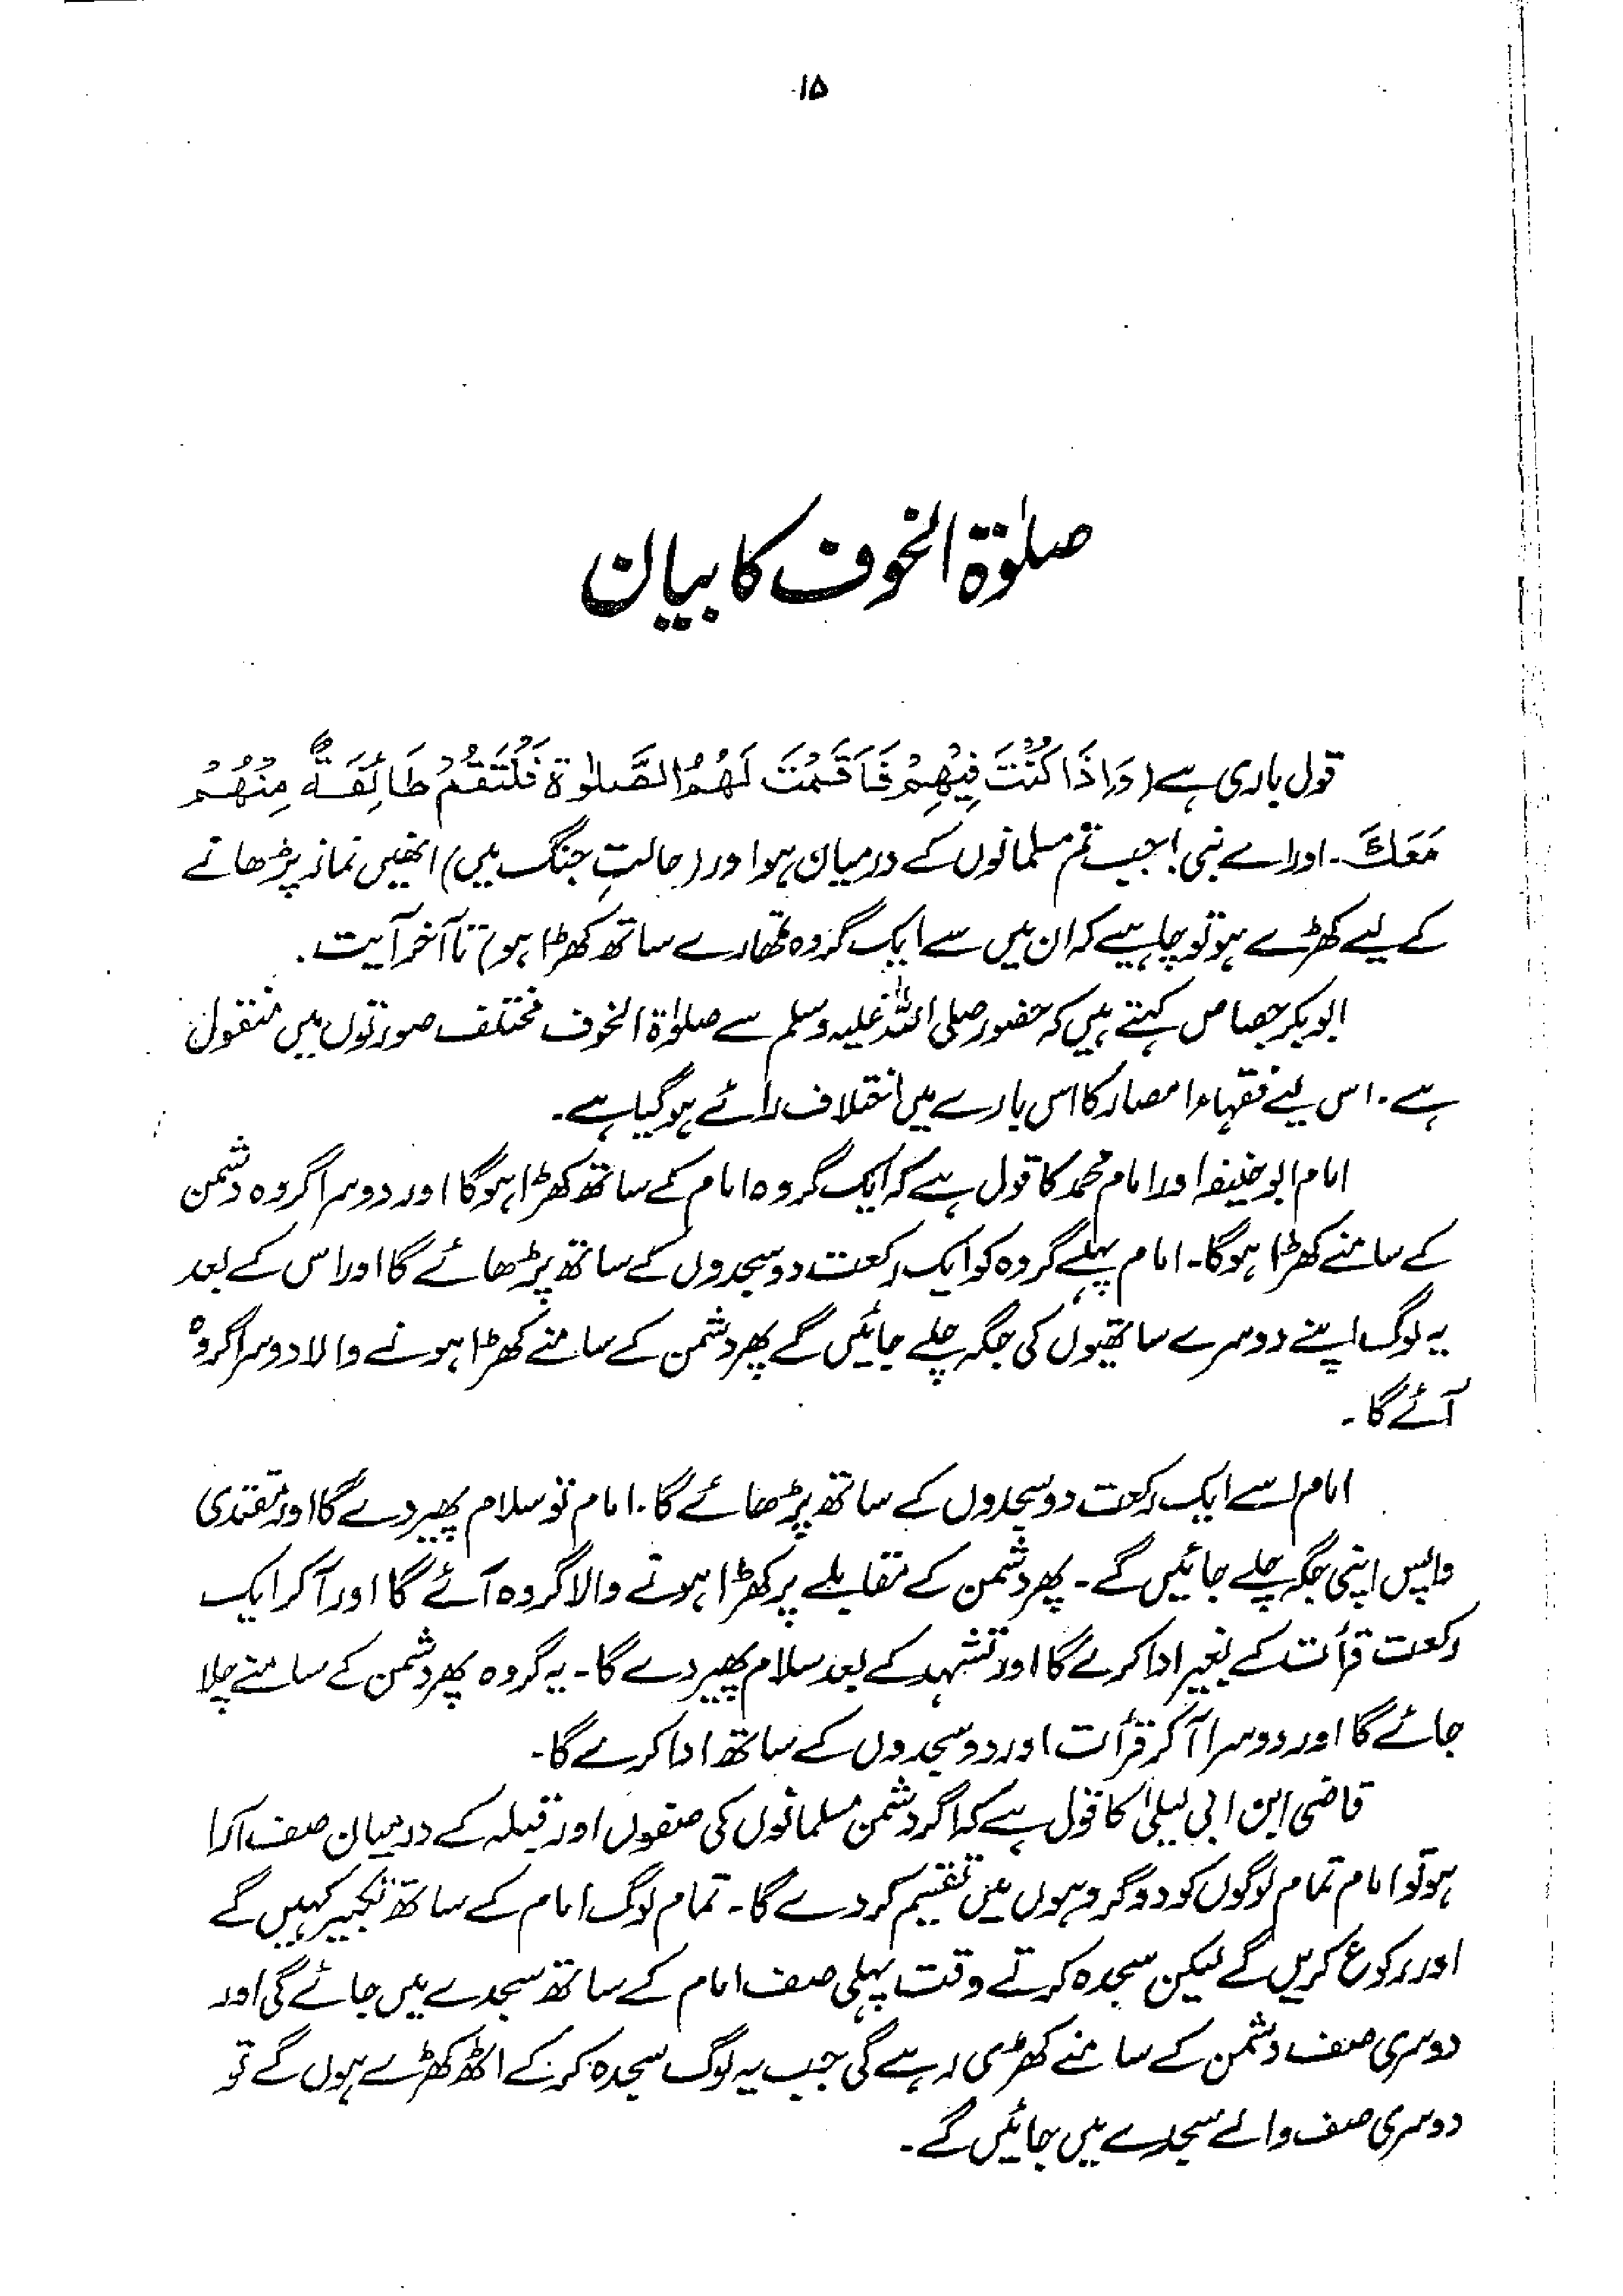 ۱۵
صلوٰۃ الخوف کا بیان
قول باری ہے (وَاِذَا كُنْتَ فِيْهِمْ فَاَقَمْتَ لَهُمُ الصَّلٰوةَ فَلْتَقُمْ طَائِفَةٌ مِنْهُمْ
مَعَكَ۔ اور اے نبی! جب تم مسلمانوں کے درمیان ہو اور (حالتِ جنگ میں) انھیں نماز پڑھانے
کے لیے کھڑے ہو تو چاہیے کہ ان میں سے ایک گروہ تمھارے ساتھ کھڑا ہو) تا آخر آیت۔
ابوبکر جصاص کہتے ہیں کہ حضور صلی اللہ علیہ وسلم سے صلوٰۃ الخوف مختلف صورتوں میں منقول
ہے۔ اس لیے فقہاء امصار کا اس بارے میں اختلاف رائے ہو گیا ہے۔
امام ابو حنیفہ اور امام محمد کا قول ہے کہ ایک گروہ امام کے ساتھ کھڑا ہوگا اور دوسرا گروہ دشمن
کے سامنے کھڑا ہوگا۔ امام پہلے گروہ کو ایک رکعت دو سجدوں کے ساتھ پڑھائے گا اور اس کے بعد
یہ لوگ اپنے دوسرے ساتھیوں کی جگہ چلے جائیں گے پھر دشمن کے سامنے کھڑا ہونے والا دوسرا گروہ
آئے گا۔
امام اسے ایک رکعت دو سجدوں کے ساتھ پڑھائے گا۔ امام تو سلام پھیر دے گا اور مقتدی
واپس اپنی جگہ چلے جائیں گے۔ پھر دشمن کے مقابلے پر کھڑا ہونے والا گروہ آئے گا اور آکر ایک
رکعت قرأت کے بغیر ادا کرے گا اور تشہد کے بعد سلام پھیر دے گا۔ یہ گروہ پھر دشمن کے سامنے چلا
جائے گا اور دوسرا آکر قرأت اور دو سجدوں کے ساتھ ادا کرے گا۔
قاضی ابن ابی لیلیٰ کا قول ہے کہ اگر دشمن مسلمانوں کی صفوں اور قبلہ کے درمیان صف آرا
ہو تو امام تمام لوگوں کو دو گروہوں میں تقسیم کر دے گا۔ تمام لوگ امام کے ساتھ تکبیر کہیں گے
اور رکوع کریں گے لیکن سجدہ کرتے وقت پہلی صف امام کے ساتھ سجدے میں جائے گی اور
دوسری صف دشمن کے سامنے کھڑی رہے گی جب یہ لوگ سجدہ کر کے اٹھ کھڑے ہوں گے تو
دوسری صف والے سجدے میں جائیں گے۔